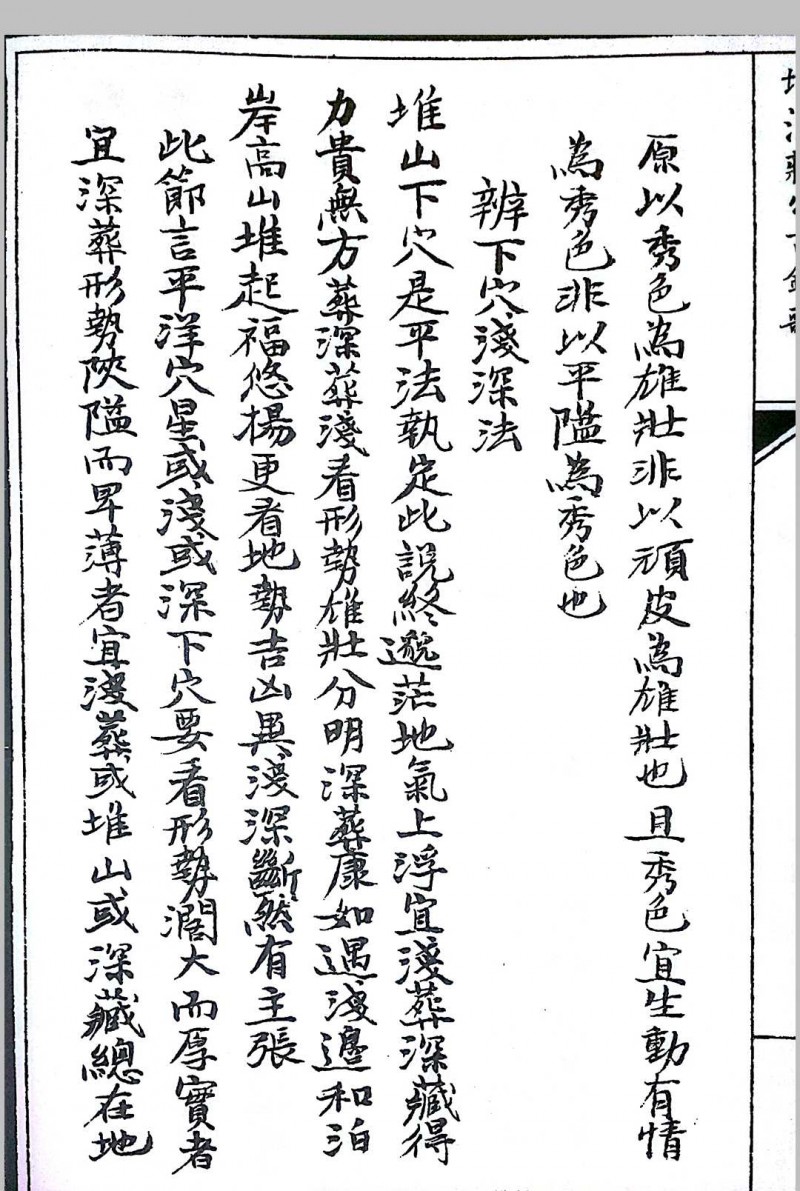 原以秀色為雄壯非以頑皮為雄壯也且秀色宜生動有情
為秀色非以平隘為秀色也
辨下穴淺深法
堆山下穴是平法執定此說終邈茫地氣上浮宜淺葬深藏得
力貴無方葬深葬淺看形勢雄壯分明深葬康如遇淺邊和泊
岸高山堆起福悠揚更看地勢吉凶異淺深斷然有主張
此節言平洋穴星或淺或深下穴要看形勢濶大而厚實者
宜深葬形勢陝隘而卑薄者宜淺葬或堆山或深藏總在地